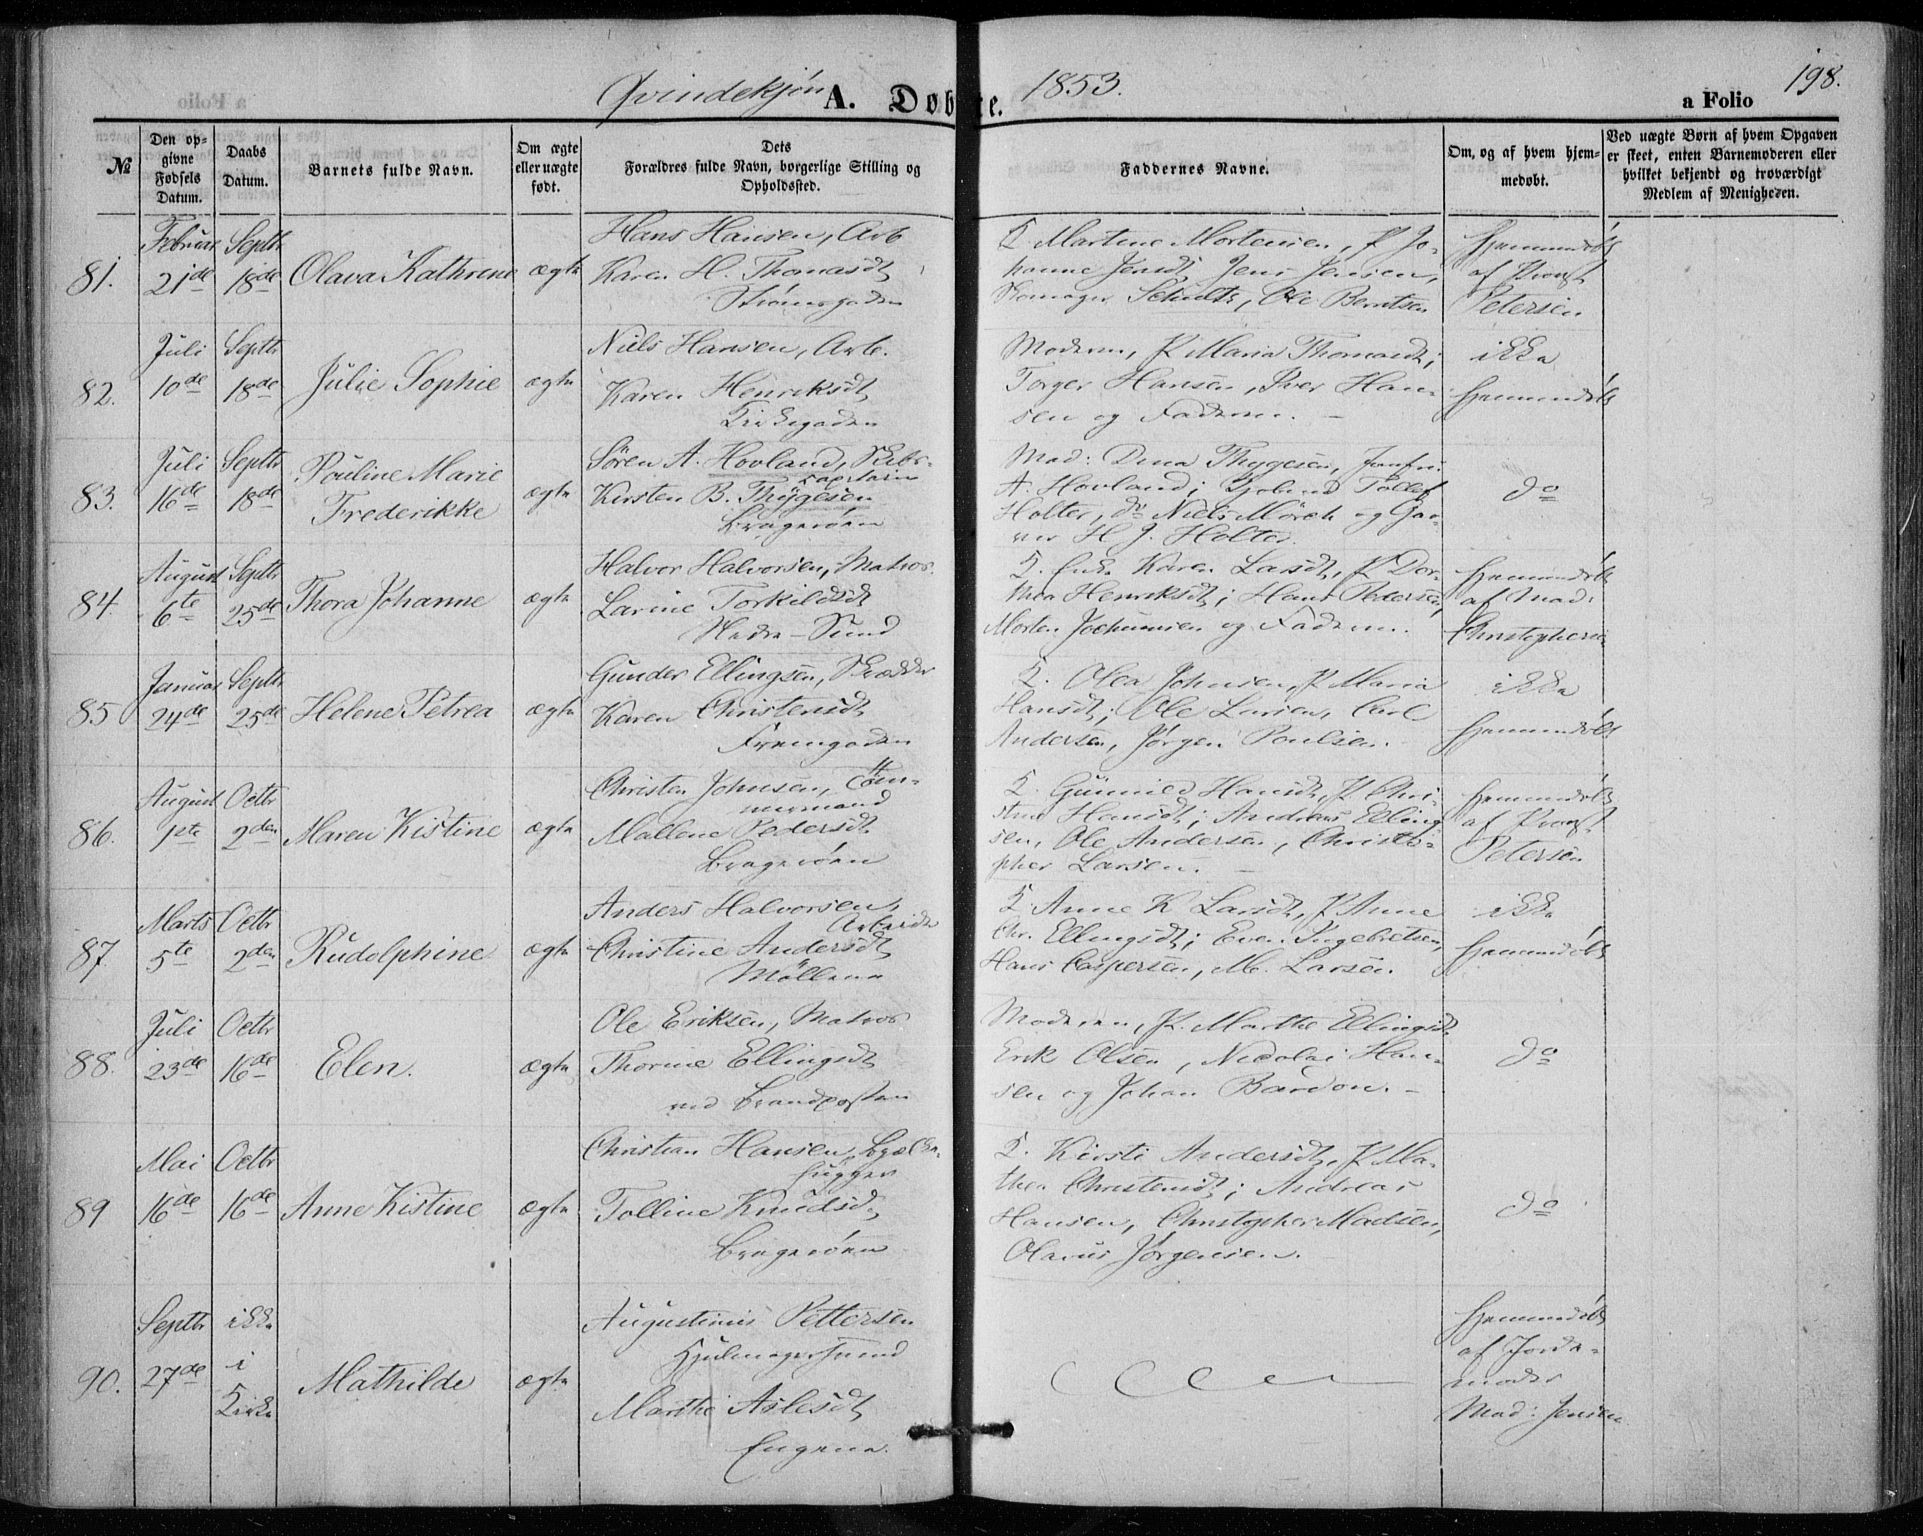 Qvindekjøn A. Døbte. 1853. a Folio 198.
№
Den opgivne Fødsels Datum.
Daabs Datum.
Barnets fulde Navn.
Om ægte eller uægte født.
Dets Forældres fulde Navn, borgerlige Stilling og Opholdssted.
Faddernes Navne.
Om, og af hvem hjemmedøbt.
Ved uægte Børn af hvem Opgaven er skeet, enten Barnemoderen eller hvilket bekjendt og troværdigt Medlem af Menigheden.
81. Februar 21de Septbr 18de Olava Kathrine ægte
Hans Hansen, Arb
Karen H. Thomasdt
Strømsgaden
K Martine Mortensen, P Jo-
hanne Jensdt, Jens Jensen,
Skomager Schultz, Ole Berntsen
Hjemmedøbt
af Provst
Petersen
82. Juli 10de Septbr 18de Julie Sophie ægte
Niels Hansen, Arb.
Karen Henriksdt
Kirkegaden
Moderen, P Maria Thomasdt;
Torger Hansen, Iver Han-
sen og Faderen. -
ikke
hjemmedøbt
83. Juli 16de Septbr 18de Pouline Marie
Frederikke ægte
Søren A. Hovland, Skibs-
capitain
Kirsten B. Thygesen
Bragerøen
Mad: Dina Thygesen, Jomfru
A. Hovland; Tollef
Holter, Niels Mørch og Gar-
ver H J. Holter.
do
84. August 6te Septbr 25de Thora Johanne ægte
Halvor Halvorsen, Matros.
Larine Torkildsdt
Nedre-Sund
K. Enke Karen Larsdt, P Dor-
thea Henriksdt; Hans Pedersen,
Morten Jochumsen og Faderen.
Hjemmedøbt
af Mad:
Christophersen
85 Januar 24de Septbr 25de Helene Petrea ægte
Gunder Ellingsen, Skrædder
Karen Christensdt
Fremgaden
K. Olea Johnsen, P Maria
Hansdt; Ole Larsen, Carl
Andersen, Jørgen Paulsen.
ikke
hjemmedøbt
86. August 1ste Octbr 2den Maren Kistine ægte
Christen Johnsen, Tøm-
mermand
Mallene Pedersdt
Bragerøen
K. Gunnild Hansdt, P Chri-
stine Hansdt; Andreas Elling-
sen, Ole Andersen, Christo-
pher Larsen. -
Hjemmedøbt
af Provst
Petersen
87. Marts 5te Octbr 2den Rudolphine ægte
Anders Halvorsen,
Arbeider
Christine Andersdt
Møllene
K Anne K Larsdt, P Anne
Chr. Ellingsdt; Even Ingebretsen,
Hans Caspersen, M. Larsen.
ikke
hjemmedøbt
88. Juli 23de Octbr 16de Elen. ægte
Ole Eriksen, Matros
Thorine Ellingsdt
ved Brandposten
Moderen, P. Marthe Ellingsdt.
Erik Olsen, Nicolai Han-
sen og Johan Bardon. -
do
89 Mai 16de Octbr 16de Anne Kistine ægte
Christian Hansen, Bjælke-
hugger
Tolline Knudsdt.
Bragerøen
K. Kirsti Andersdt, P Ma-
thea Christensdt; Andreas
Hansen, Christopher Madsen,
Olaus Jørgensen.
do
90. Septbr 27de ikke
i
Kirke Mathilde ægte
Augustinus Pettersen
Hjulmagersvend
Marthe Aslesdt
Engene.
Hjemmedøbt
af Jorde-
moder
Mad: Jensen